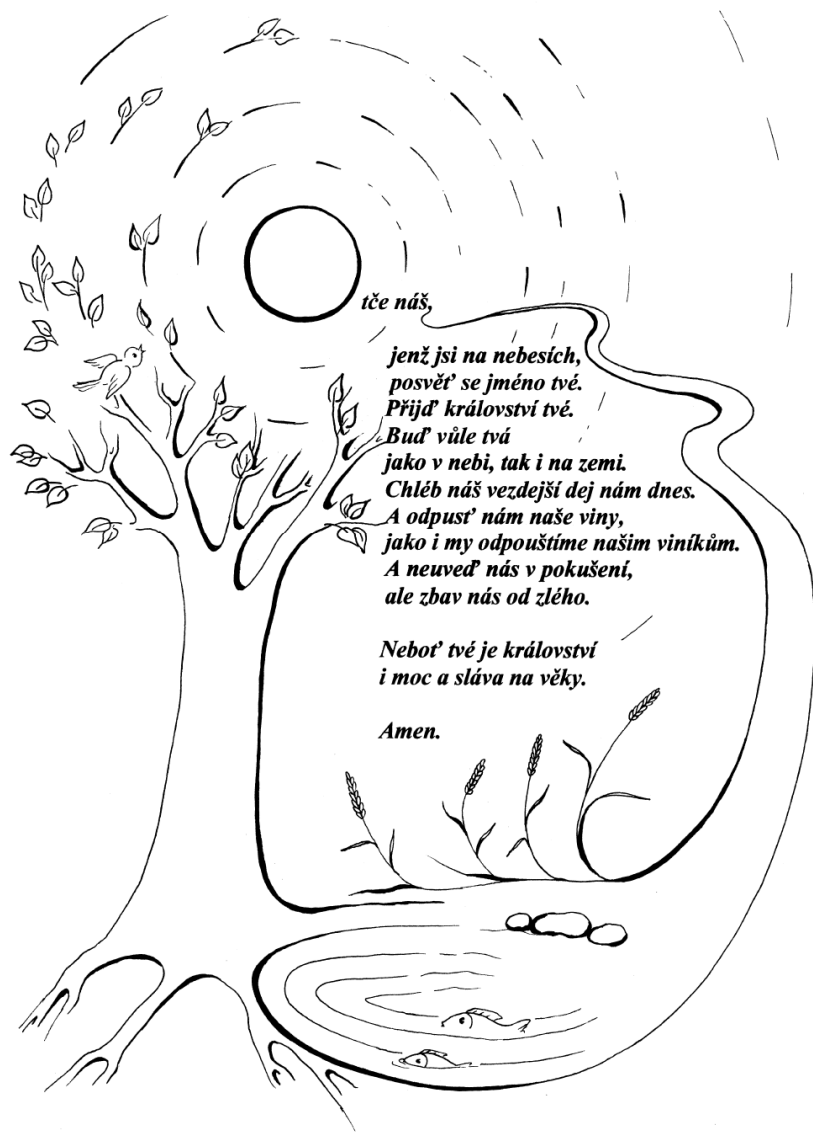 tče náš,
jenž jsi na nebesích,
posvěť se jméno tvé.
Přijď království tvé.
Buď vůle tvá
jako v nebi, tak i na zemi.
Chléb náš vezdejší dej nám dnes.
A odpusť nám naše viny,
jako i my odpouštíme našim viníkům.
A neuveď nás v pokušení,
ale zbav nás od zlého.
Neboť tvé je království
i moc a sláva na věky.
Amen.